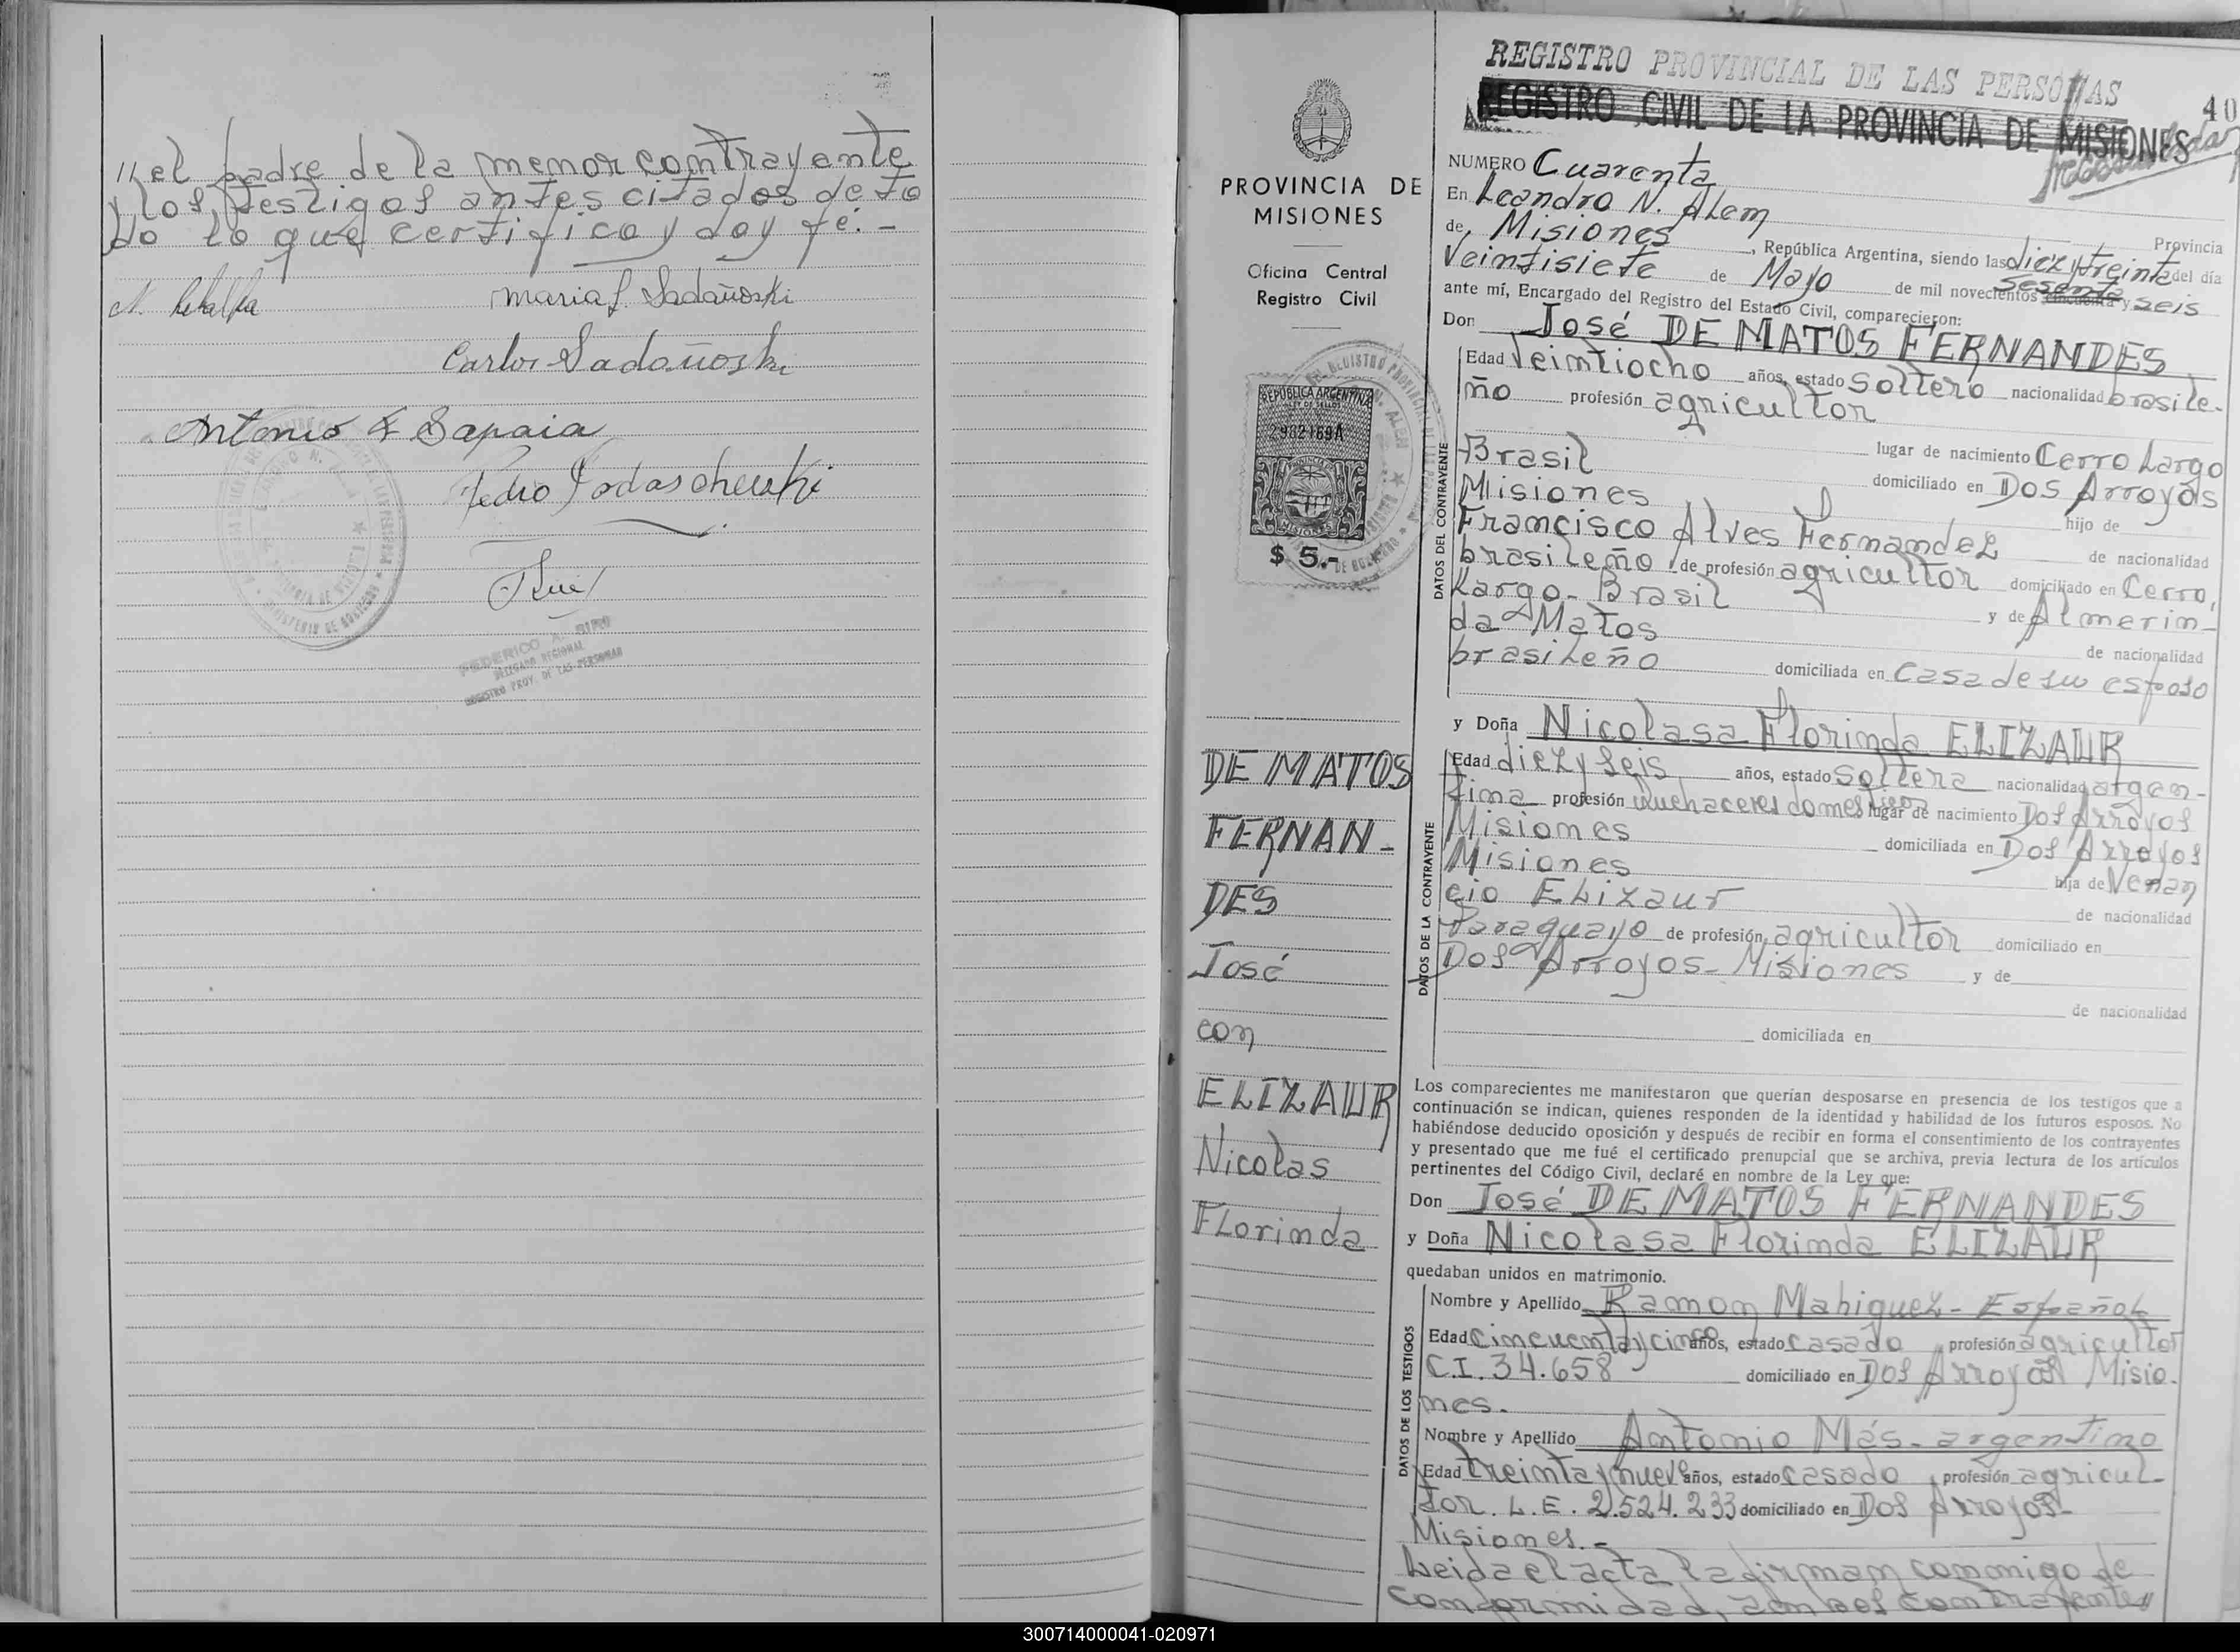 // el padre de la menor contrayente
y los testigos antes citados de to
do lo que certifico y doy fé. -
Maria L. Sadañoski
Carlos Sadañoski
Antonio F Sapaia
Pedro Podaschewski
FEDERICO A.
DELEGADO REGIONAL
REGISTRO PROV. DE LAS PERSONAS
PROVINCIA DE
MISIONES
Oficina Central
Registro Civil
REPUBLICA ARGENTINA
LEY DE SELLOS
2982169A
MISIONES
$ 5.-
DE MATOS
FERNAN-
DES
José
con
ELIZAUR
Nicolas
Florinda
REGISTRO PROVINCIAL DE LAS PERSONAS
REGISTRO CIVIL DE LA PROVINCIA DE MISIONES
40
NUMERO Cuarenta
En Leandro N. Alem
Provincia
de Misiones, República Argentina, siendo las diez y treinta del día
Veintisiete de Mayo de mil novecientos cincuenta sesenta y seis
ante mí, Encargado del Registro del Estado Civil, comparecieron:
Don José DE MATOS FERNANDES
DATOS DEL CONTRAYENTE
Edad Veintiocho años, estado Soltero nacionalidad brasile-
ño profesión agricultor
lugar de nacimiento Cerro Largo
Brasil domiciliado en Dos Arroyos
Misiones hijo de
Francisco Alves Fernandez de nacionalidad
brasileño de profesión agricultor domiciliado en Cerro
Largo - Brasil y de Almerin-
da Matos de nacionalidad
brasileño domiciliada en Casa de su esposo
y Doña Nicolasa Florinda ELIZAUR
DATOS DE LA CONTRAYENTE
Edad diez y seis años, estado Soltera nacionalidad argen-
tina profesión quehaceres domesticos lugar de nacimiento Dos Arroyos
Misiones domiciliada en Dos Arroyos
Misiones hija de Venan
cio Elizaur de nacionalidad
Paraguayo de profesión agricultor domiciliado en
Dos Arroyos - Misiones y de
de nacionalidad
domiciliada en
Los comparecientes me manifestaron que querían desposarse en presencia de los testigos que a
continuación se indican, quienes responden de la identidad y habilidad de los futuros esposos. No
habiéndose deducido oposición y después de recibir en forma el consentimiento de los contrayentes
y presentado que me fué el certificado prenupcial que se archiva, previa lectura de los artículos
pertinentes del Código Civil, declaré en nombre de la Ley que:
Don José DE MATOS FERNANDES
y Doña Nicolasa Florinda ELIZAUR
quedaban unidos en matrimonio.
DATOS DE LOS TESTIGOS
Nombre y Apellido Ramon Mahiquez - Español
Edad Cincuenta y cinco años, estado casado profesión agricultor
C.I. 34.658 domiciliado en Dos Arroyos Misio-
nes.
Nombre y Apellido Antonio Más - argentino
Edad treinta y nueve años, estado casado profesión agricul-
tor. L.E. 2.524.233 domiciliado en Dos Arroyos -
Misiones. -
Leida el acta la firman conmigo de
conformidad, ambos contrayentes //
300714000041-020971